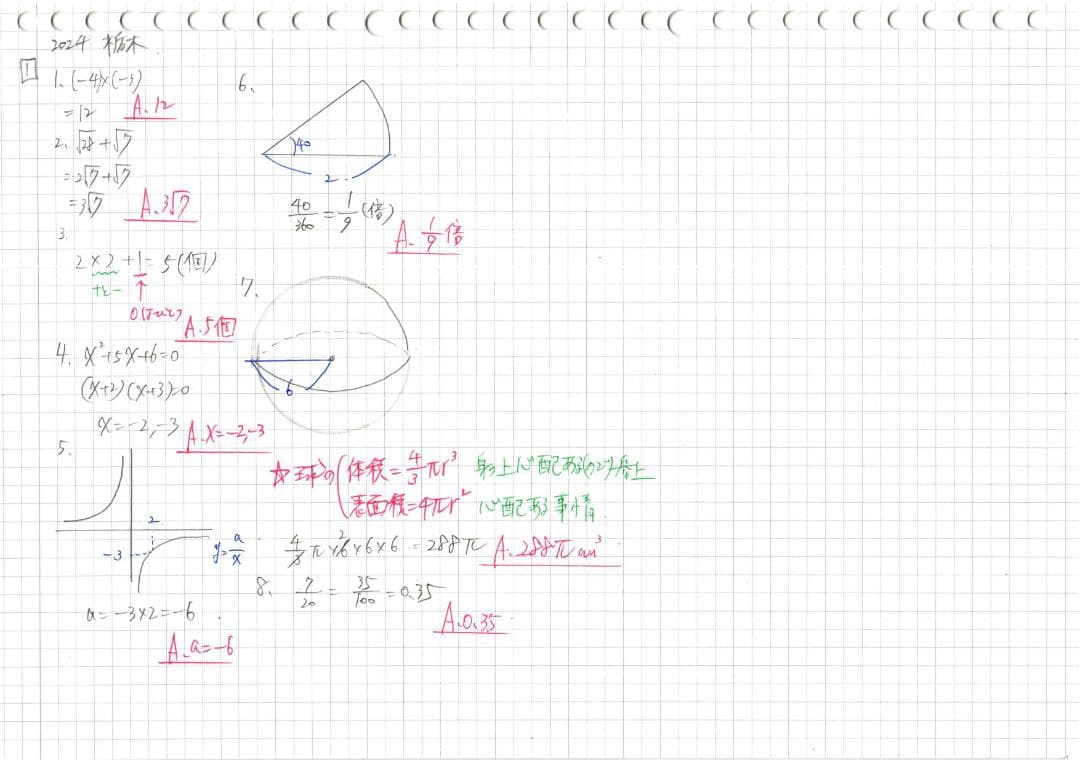 2024 栃木
1
1、(-4)×(-3)
=12
A.12
2、√28+√7
=2√7+√7
=3√7
A.3√7
3.
2×2+1=5(個)
+と-
↑
A.5個
4、x²+5x+6=0
(x+2)(x+3)=0
x=-2,-3
A.x=-2,-3
5、
2
-3
y=a/x
a=-3×2=-6
A.a=-6
6、
40
2
40/360=1/9(倍)
A.1/9倍
7、
6
☆球の(体積=4/3πr³ 身の上心配ある
表面積=4πr² 心配ある事情
4/3π×6×6×6=288π
2
A.288πcm³
8、7/20=35/100=0.35
A.0.35